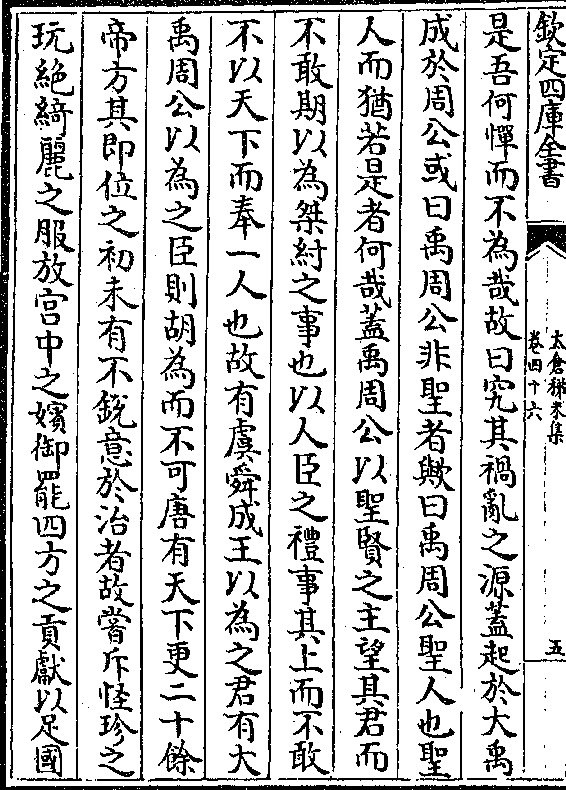 欽定四庫全書
太倉稊米集
卷四十六
五
是吾何憚而不為哉故曰究其禍亂之源蓋起於大禹
成於周公或曰禹周公非聖者歟曰禹周公聖人也聖
人而猶若是者何哉蓋禹周公以聖賢之主望其君而
不敢期以為桀紂之事也以人臣之禮事其上而不敢
不以天下而奉一人也故有虞舜成王以為之君有大
禹周公以為之臣則胡為而不可唐有天下更二十餘
帝方其即位之初未有不銳意於治者故嘗斥怪珍之
玩絶綺麗之服放宫中之嬪御罷四方之貢獻以足國